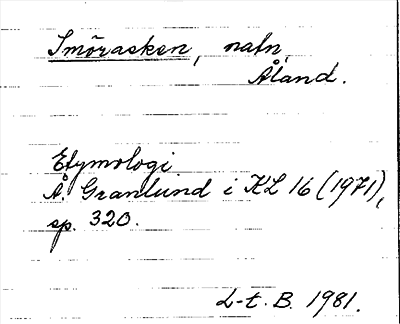 Smörasken, natn,
Åland.
Etymologi
Å. Granlund i KL 16 (1971),
sp. 320.
L-t. B. 1981.